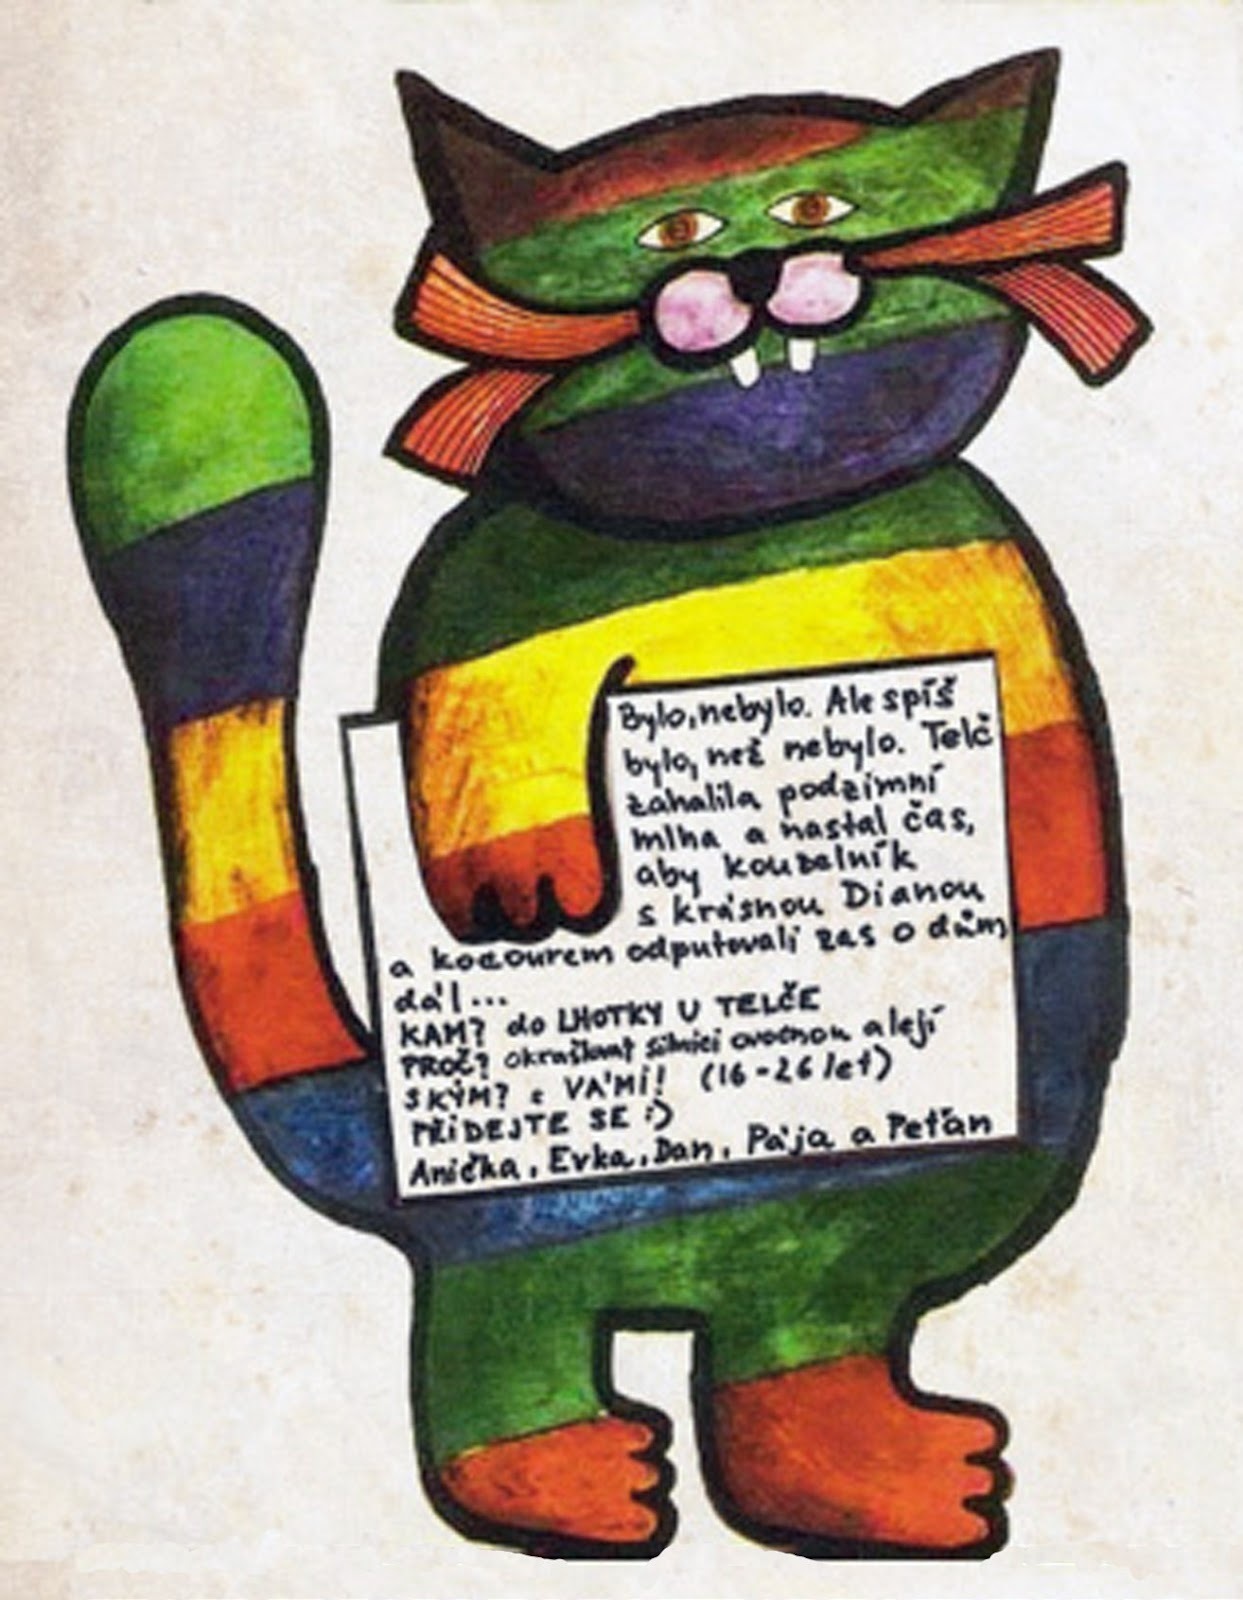 Bylo, nebylo. Ale spíš
bylo, než nebylo. Telč
zahalila podzimní
mlha a nastal čas,
aby kouzelník
s krásnou Dianou
a kocourem odputovali zas o dům
dál...
KAM? do LHOTKY U TELČE
PROČ? okrášlovat silnici ovocnou alejí
S KÝM? s VÁMI! (16-26 let)
PŘIDEJTE SE :)
Anička, Evka, Dan, Pája a Peťan